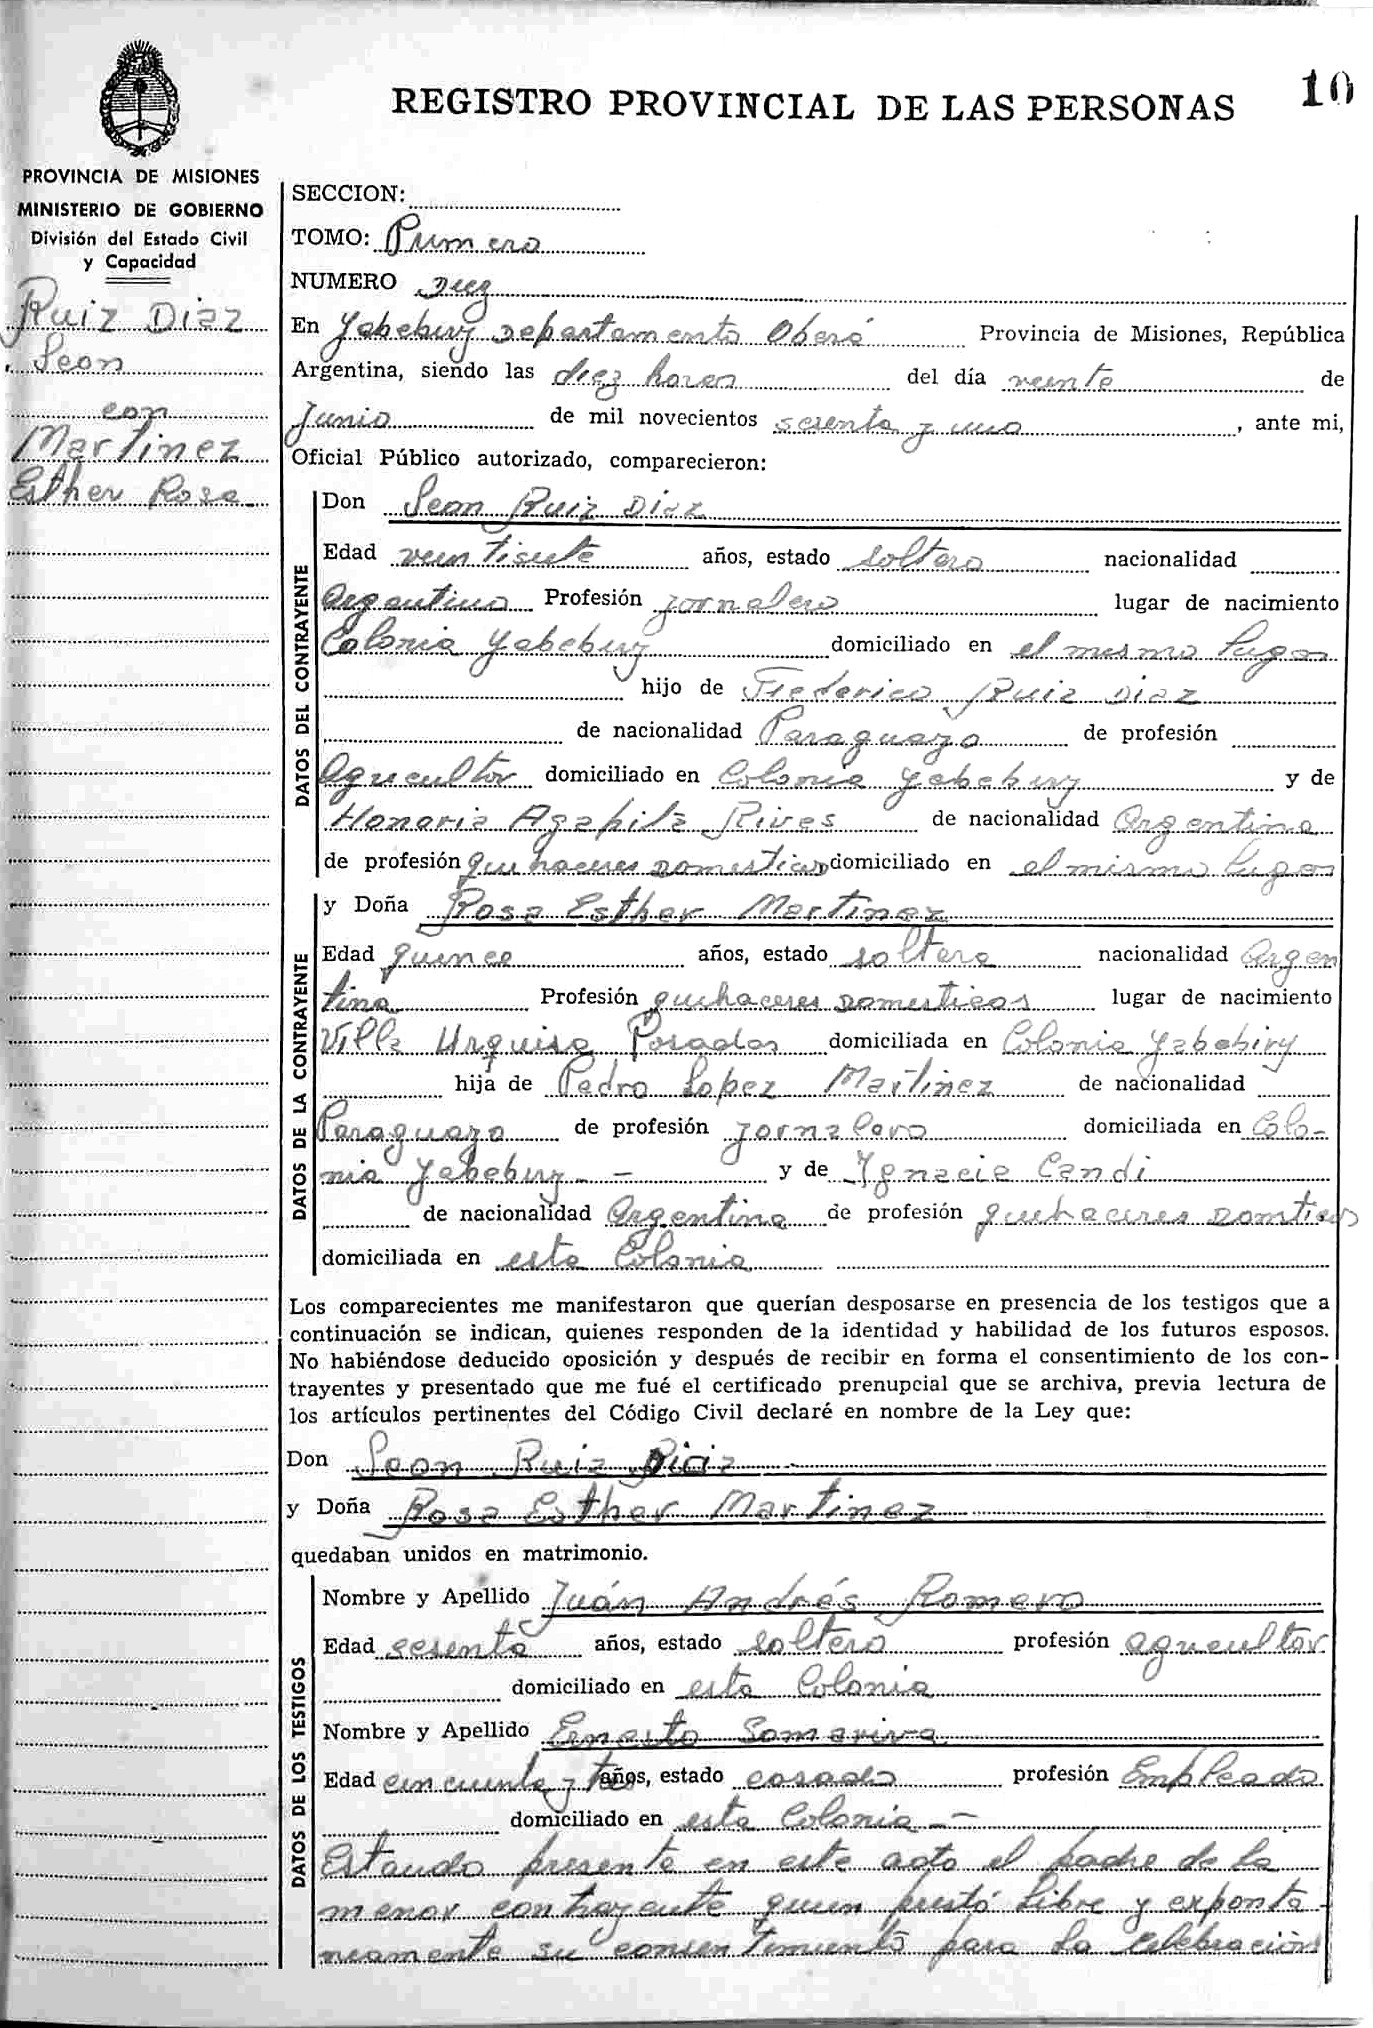 10
REGISTRO PROVINCIAL DE LAS PERSONAS
PROVINCIA DE MISIONES
MINISTERIO DE GOBIERNO
División del Estado Civil
y Capacidad
Ruiz Diaz
Leon
con
Martinez
Esther Rosa
SECCION:
TOMO: Primero
NUMERO Diez
En Yabebiry Departamento Oberá Provincia de Misiones, República
Argentina, siendo las diez horas del día veinte de
Junio de mil novecientos sesenta y uno, ante mi,
Oficial Público autorizado, comparecieron:
DATOS DEL CONTRAYENTE
Don Leon Ruiz Diaz
Edad veintisiete años, estado soltero nacionalidad
Argentino Profesión jornalero lugar de nacimiento
Colonia Yabebiry domiciliado en el mismo lugar
hijo de Federico Ruiz Diaz
de nacionalidad Paraguayo de profesión
Agricultor domiciliado en Colonia Yabebiry y de
Honoria Agapita Rives de nacionalidad Argentina
de profesión quehaceres domesticos domiciliado en el mismo lugar
DATOS DE LA CONTRAYENTE
y Doña Rosa Esther Martinez
Edad quince años, estado soltera nacionalidad Argen
tina Profesión quehaceres domesticos lugar de nacimiento
Villa Urquisa Posadas domiciliada en Colonia Yabebiry
hija de Pedro Lopez Martinez de nacionalidad
Paraguayo de profesión jornalero domiciliada en Colo-
nia Yabebiry - y de Ignacia Candi
de nacionalidad Argentina de profesión quehaceres domticos
domiciliada en esta Colonia
Los comparecientes me manifestaron que querían desposarse en presencia de los testigos que a
continuación se indican, quienes responden de la identidad y habilidad de los futuros esposos.
No habiéndose deducido oposición y después de recibir en forma el consentimiento de los con-
trayentes y presentado que me fué el certificado prenupcial que se archiva, previa lectura de
los artículos pertinentes del Código Civil declaré en nombre de la Ley que:
Don Leon Ruiz Diaz
y Doña Rosa Esther Martinez
quedaban unidos en matrimonio.
DATOS DE LOS TESTIGOS
Nombre y Apellido Juán Andrés Romero
Edad sesenta años, estado soltero profesión agricultor
domiciliado en esta Colonia
Nombre y Apellido Ernesto Somariva
Edad cincuenta y tres años, estado casado profesión Empleado
domiciliado en esta Colonia -
Estando presente en este acto el padre de la
menor contrayente quien prestó libre y exponta
neamente su consentimiento para la celebración